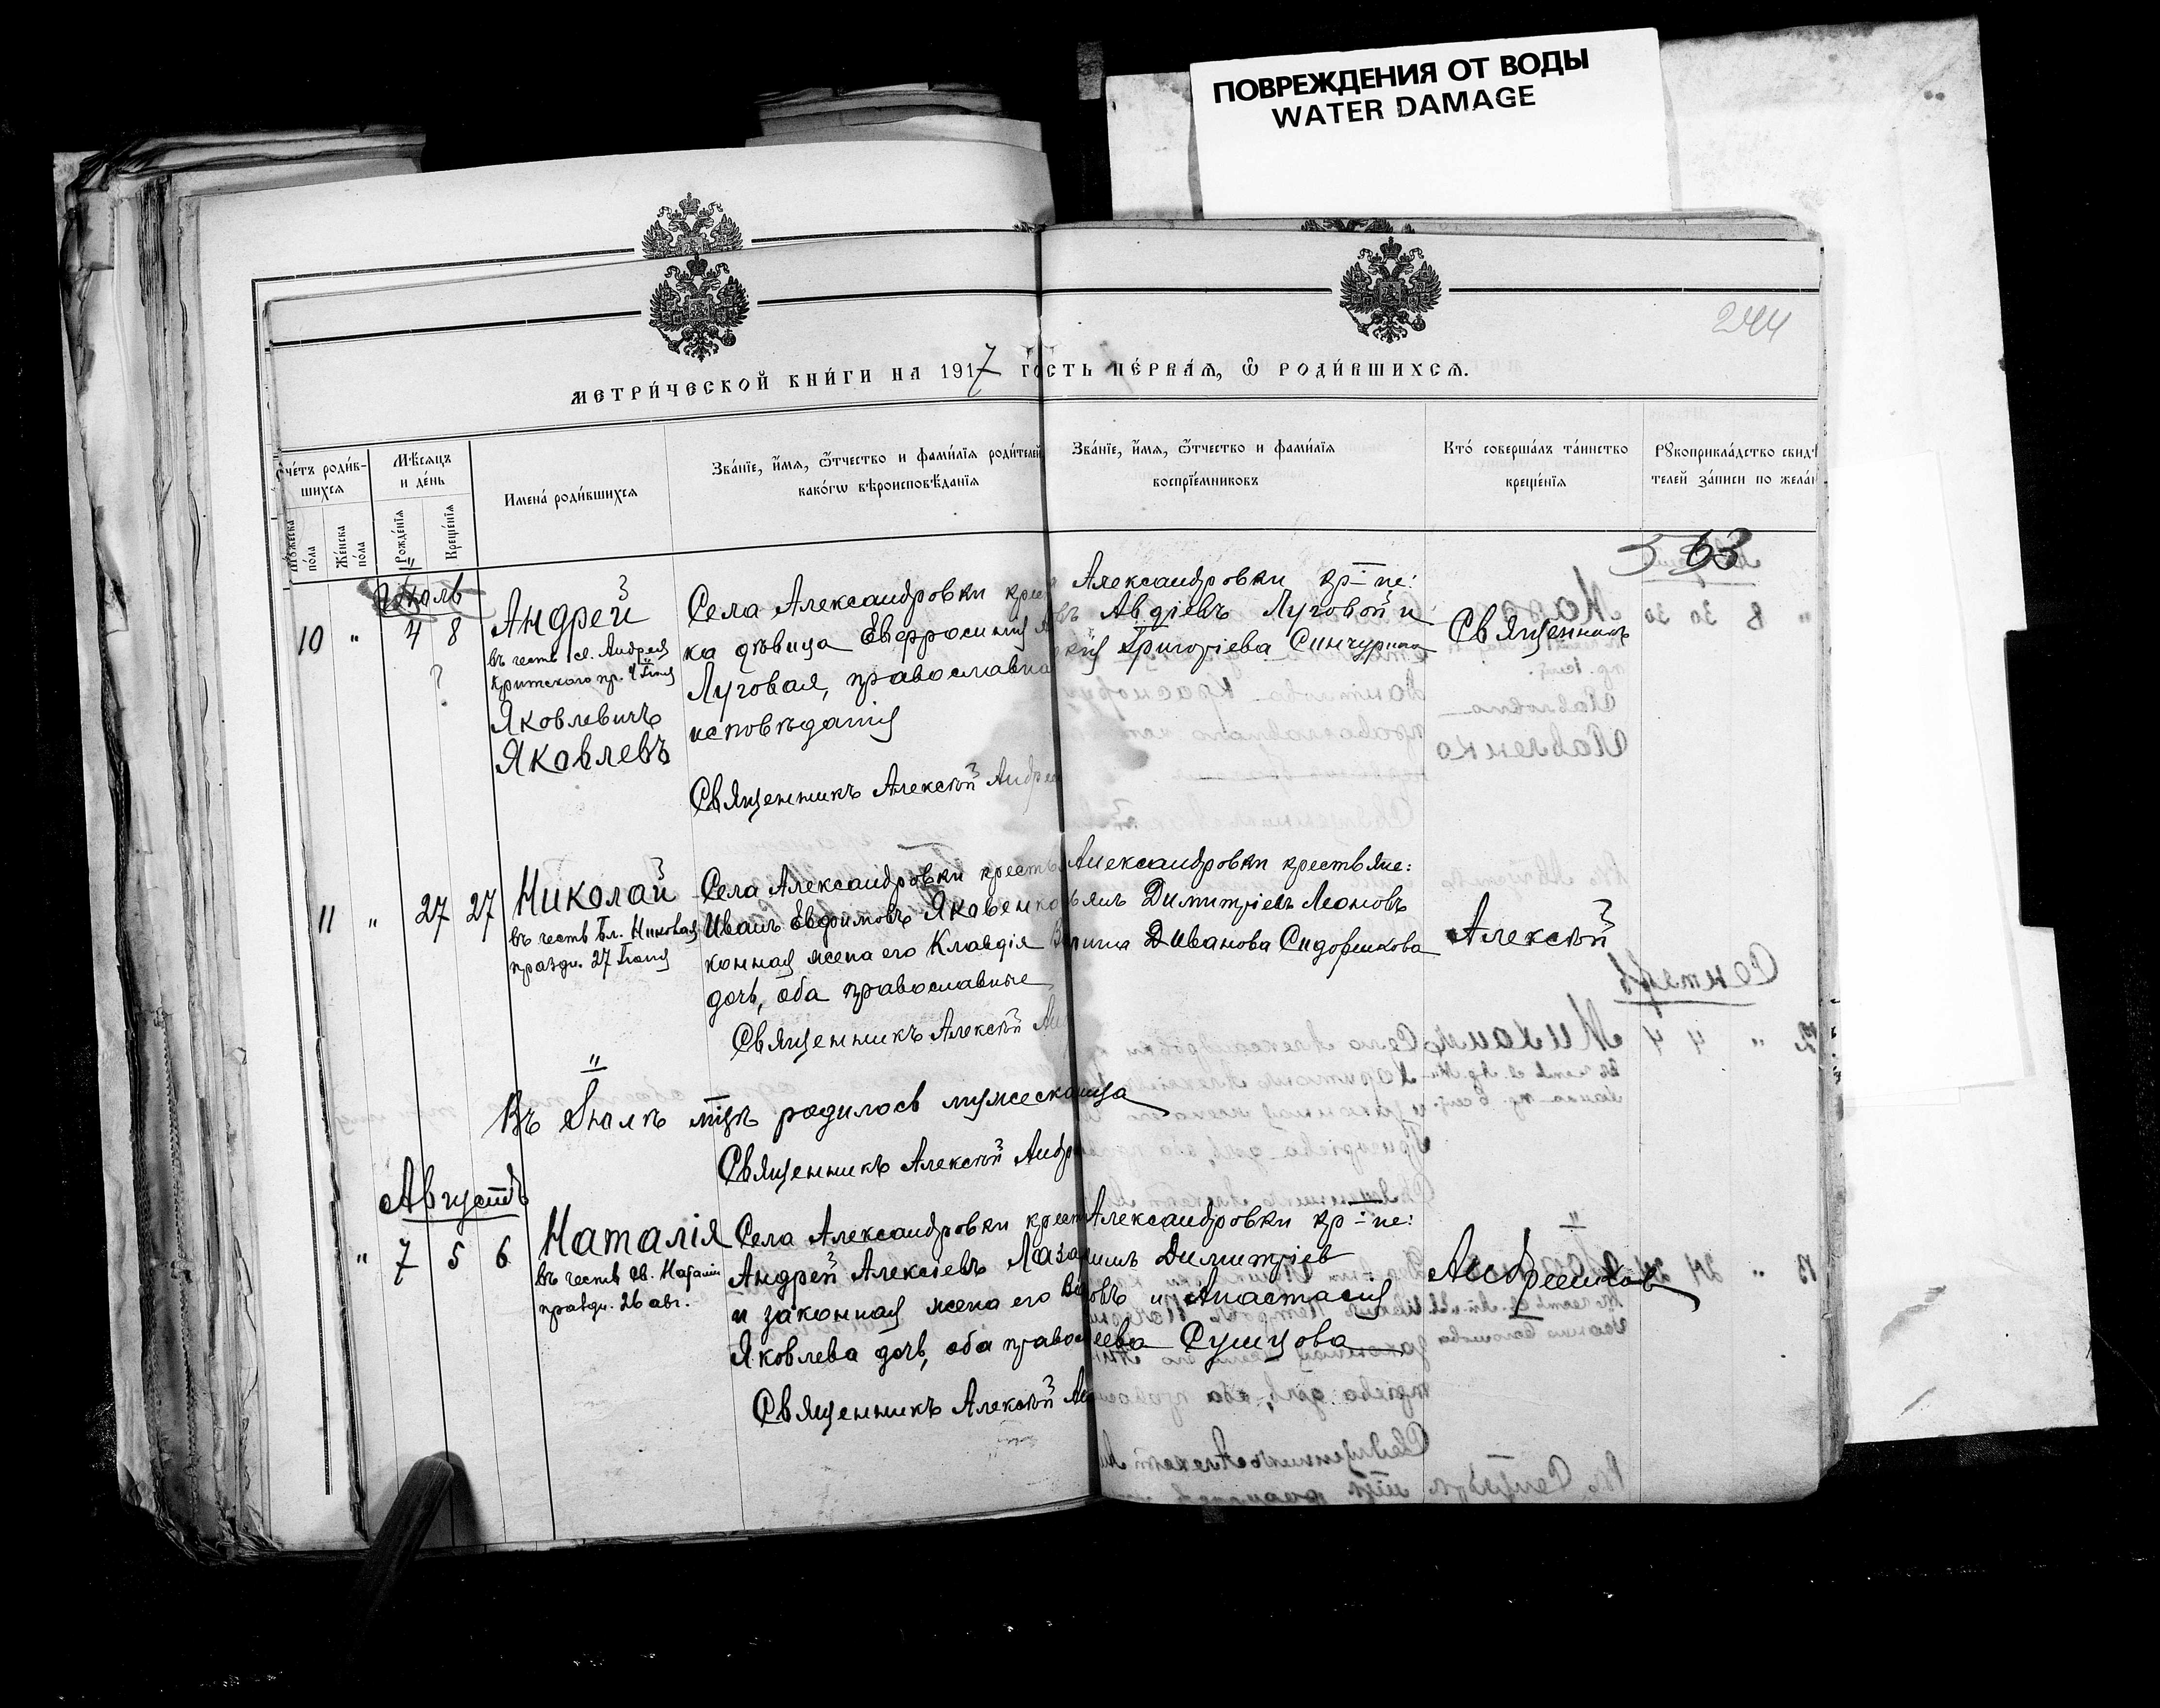 ПОВРЕЖДЕНИЯ ОТ ВОДЫ
WATER DAMAGE
244
МЕТРИ́ЧЕСКОЙ КНИ́ГИ НА 1917 ГО
СТЬ ПЕ́РВАѦ, Ѽ РОДИ́ВШИХСѦ.
Сче́тъ роди́в-
шихсѧ
Мѣ́сѧцъ
и де́нь
Имена́ роди́вшихсѧ
Зва́нїе, и́мѧ, ѻ҆́тчество и фами́лїѧ роди́телей
како́гѡ вѣроисповѣ́данїѧ
Зва́нїе, и́мѧ, ѻ҆́тчество и фами́лїѧ
воспрїе́мниковъ
Кто́ соверша́лъ та́инство
креще́нїѧ
Рꙋкоприкла́дство свидѣ
телей за́писи по жела́
Мꙋ́жеска по́ла
Же́нска по́ла
Рожде́нїѧ
Креще́нїѧ
63
Іюль
10 " 4 8
Андрей
въ честь св. Андрея
Критского пр. 4 Іюля
Яковлевичъ
Яковлевъ
Села Александровки крес
ка дѣвица Евфросинія
Луговая, православна
исповѣданія
Священникъ Алексѣй Андре
Александровки кр-не:
въ Авдіевъ Луговой и
кія Григоріева Синчурина
Священникъ
11 " 27 27
Николай
въ честь Бл. Николая
праздн. 27 Іюля
Села Александровки крест
Иванъ Евфимовъ Яковенко
конная жена его Клавдія
дочь, оба православные
Священникъ Алексѣй Ан
Александровки крестьяне:
Димитріевъ Леоновъ
Иванова Сидоренкова
Алексѣй
Въ Іюлѣ мцѣ родилось мужеска
Священникъ Алексѣй Андр
Августъ
" 7 5 6
Наталія
въ честь св. Наталіи
праздн. 26 авг.
Села Александровки крест
Андрей Алексіевъ Лаза
и законная жена его
Яковлева дочь, оба правос
Священникъ Алексѣй Ан
Александровки кр-не:
Димитріев
овъ и Анастасія
еева Сушцова
Андреенков